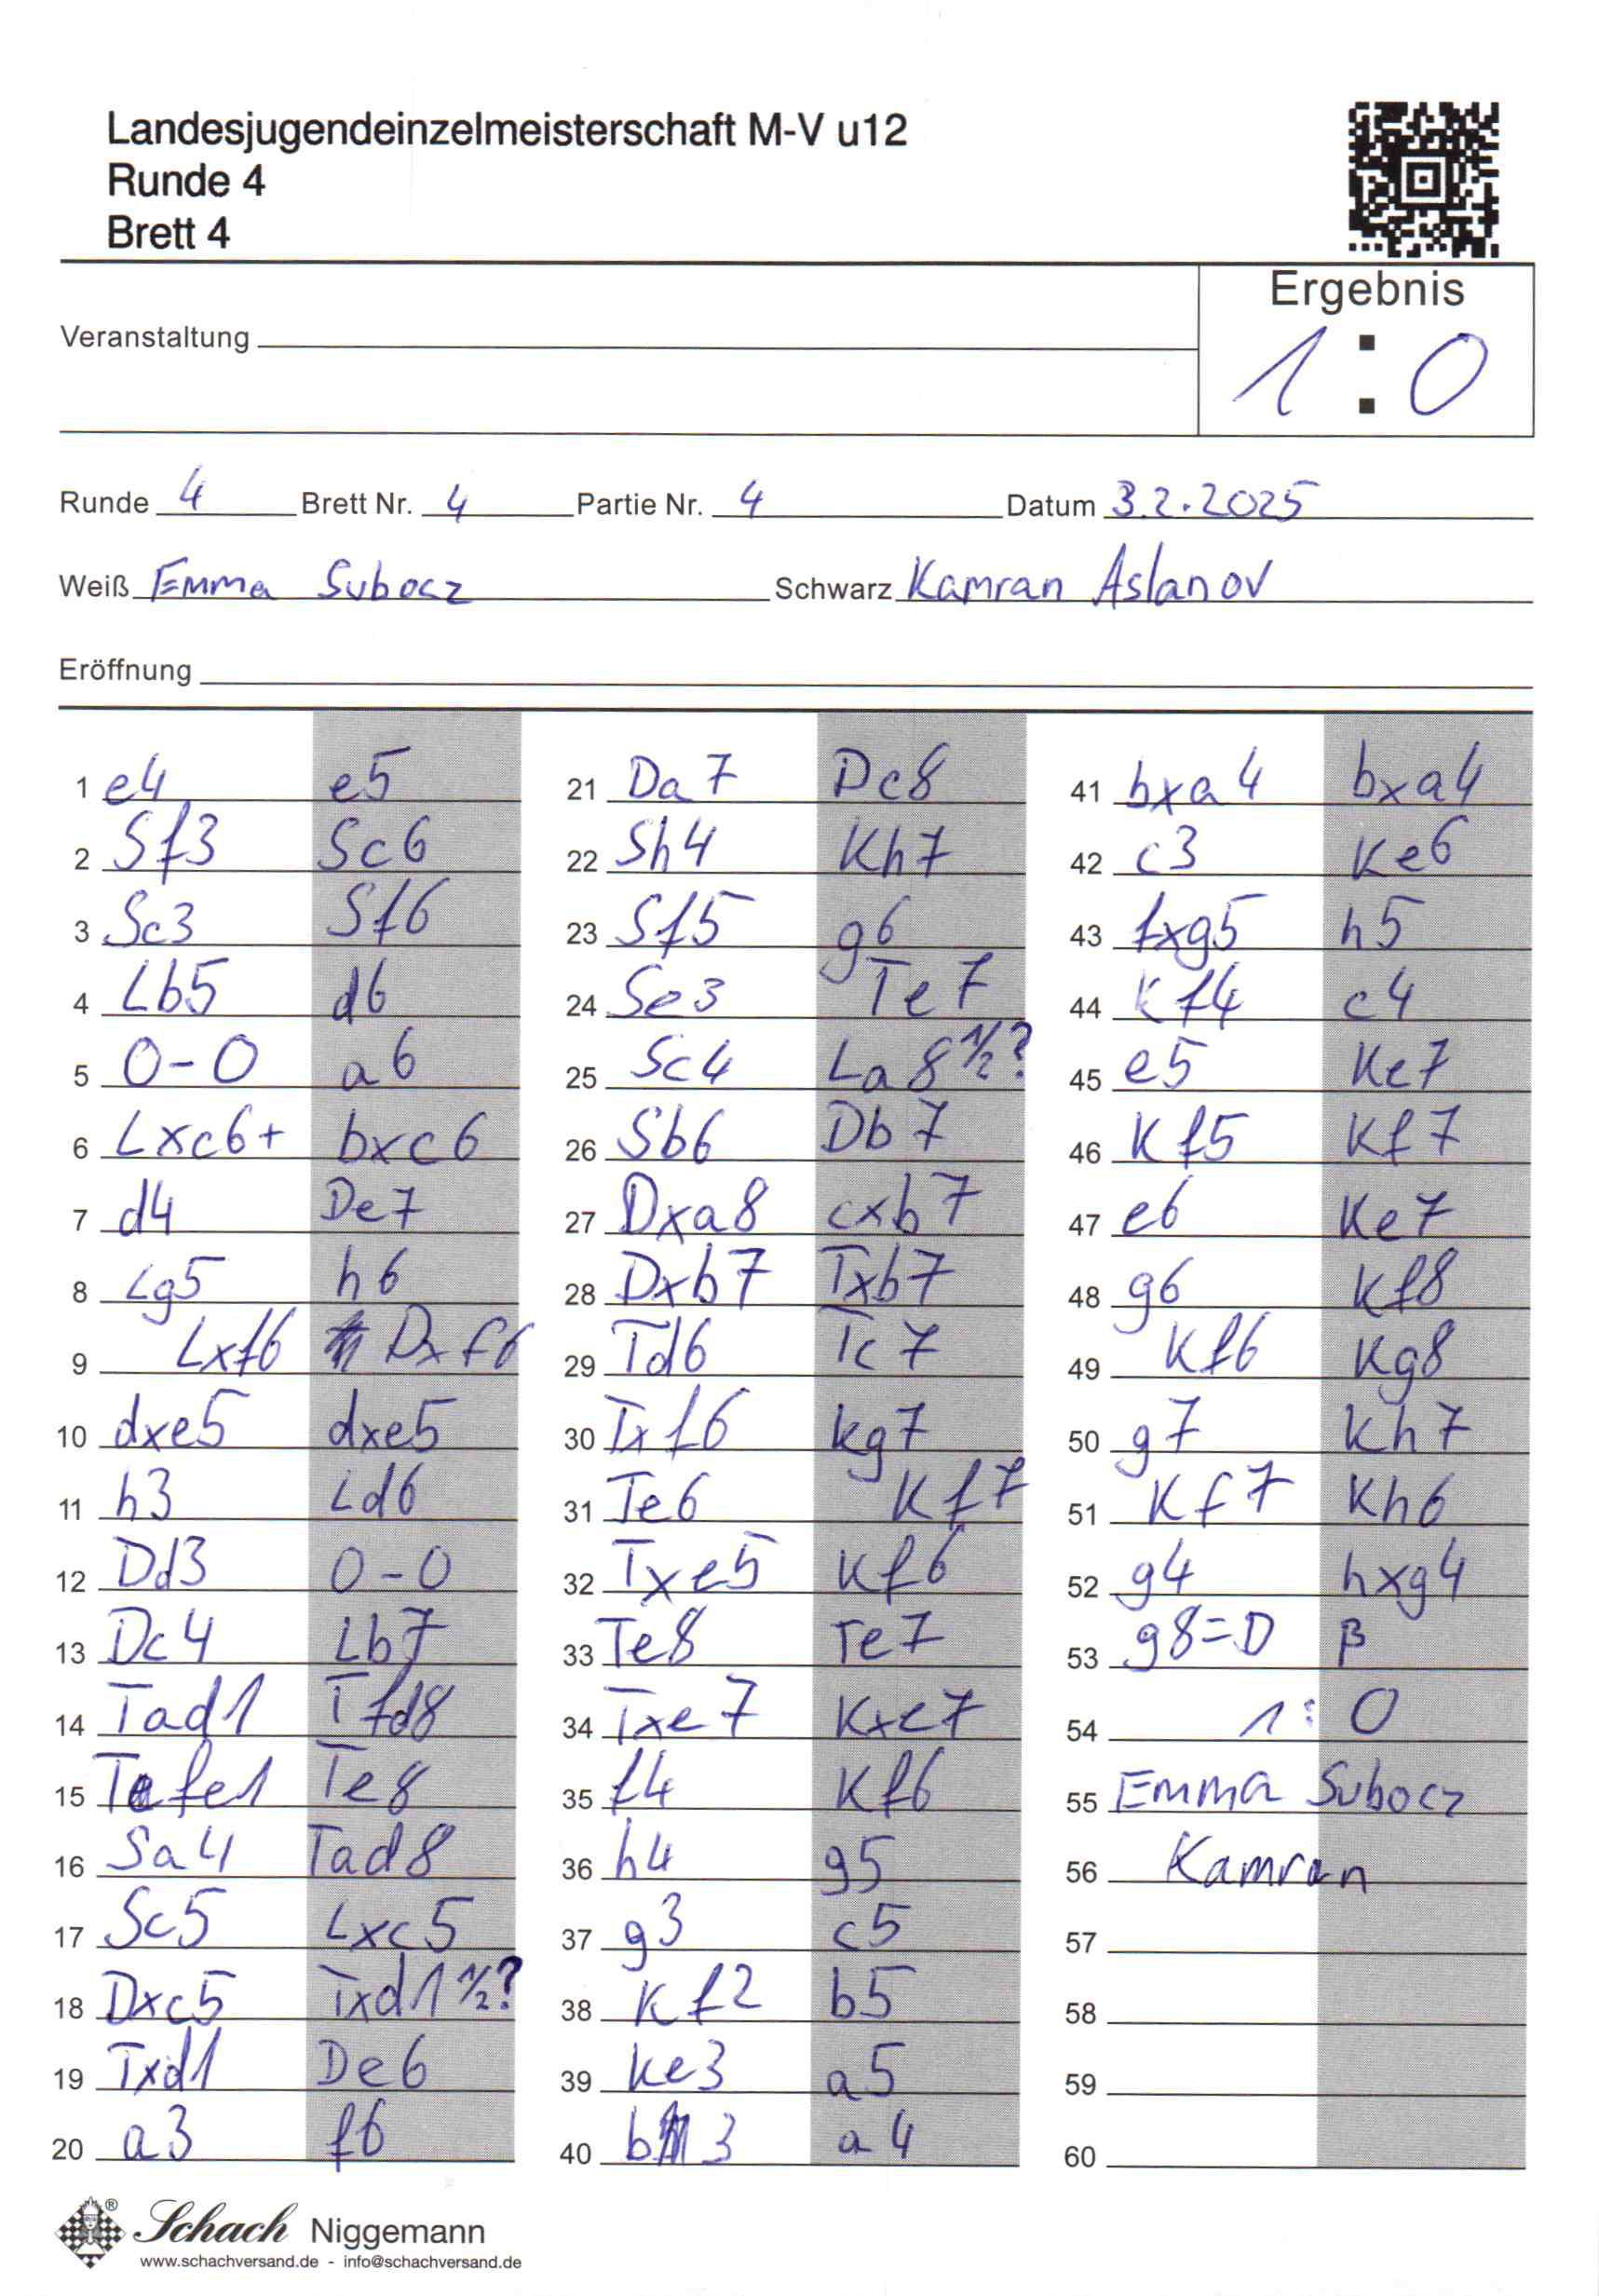 Landesjugendeinzelmeisterschaft M-V u12
Runde 4
Brett 4
Ergebnis
1 : 0
Veranstaltung
Runde 4 Brett Nr. 4 Partie Nr. 4 Datum 3.2.2025
Weiß Emma Subocz Schwarz Kamran Aslanov
Eröffnung
1 e4 e5
2 Sf3 Sc6
3 Sc3 Sf6
4 Lb5 d6
5 0-0 a6
6 Lxc6+ bxc6
7 d4 De7
8 Lg5 h6
9 Lxf6 Dxf6
10 dxe5 dxe5
11 h3 Ld6
12 Dd3 0-0
13 Dc4 Lb7
14 Tad1 Tfd8
15 Tfe1 Te8
16 Sa4 Tad8
17 Sc5 Lxc5
18 Dxc5 Txd1 ½?
19 Txd1 De6
20 a3 f6
21 Da7 Dc8
22 Sh4 Kh7
23 Sf5 g6
24 Se3 Te7
25 Sc4 La8 ½?
26 Sb6 Db7
27 Dxa8 cxb7
28 Dxb7 Txb7
29 Td6 Tc7
30 Txf6 Kg7
31 Te6 Kf7
32 Txe5 Kf6
33 Te8 Te7
34 Txe7 Kxe7
35 f4 Kf6
36 h4 g5
37 g3 c5
38 Kf2 b5
39 Ke3 a5
40 b3 a4
41 bxa4 bxa4
42 c3 Ke6
43 fxg5 h5
44 Kf4 c4
45 e5 Ke7
46 Kf5 Kf7
47 e6 Ke7
48 g6 Kf8
49 Kf6 Kg8
50 g7 Kh7
51 Kf7 Kh6
52 g4 hxg4
53 g8=D β
54 1:0
55 Emma Subocz
56 Kamran
57
58
59
60
® Schach Niggemann
www.schachversand.de - info@schachversand.de